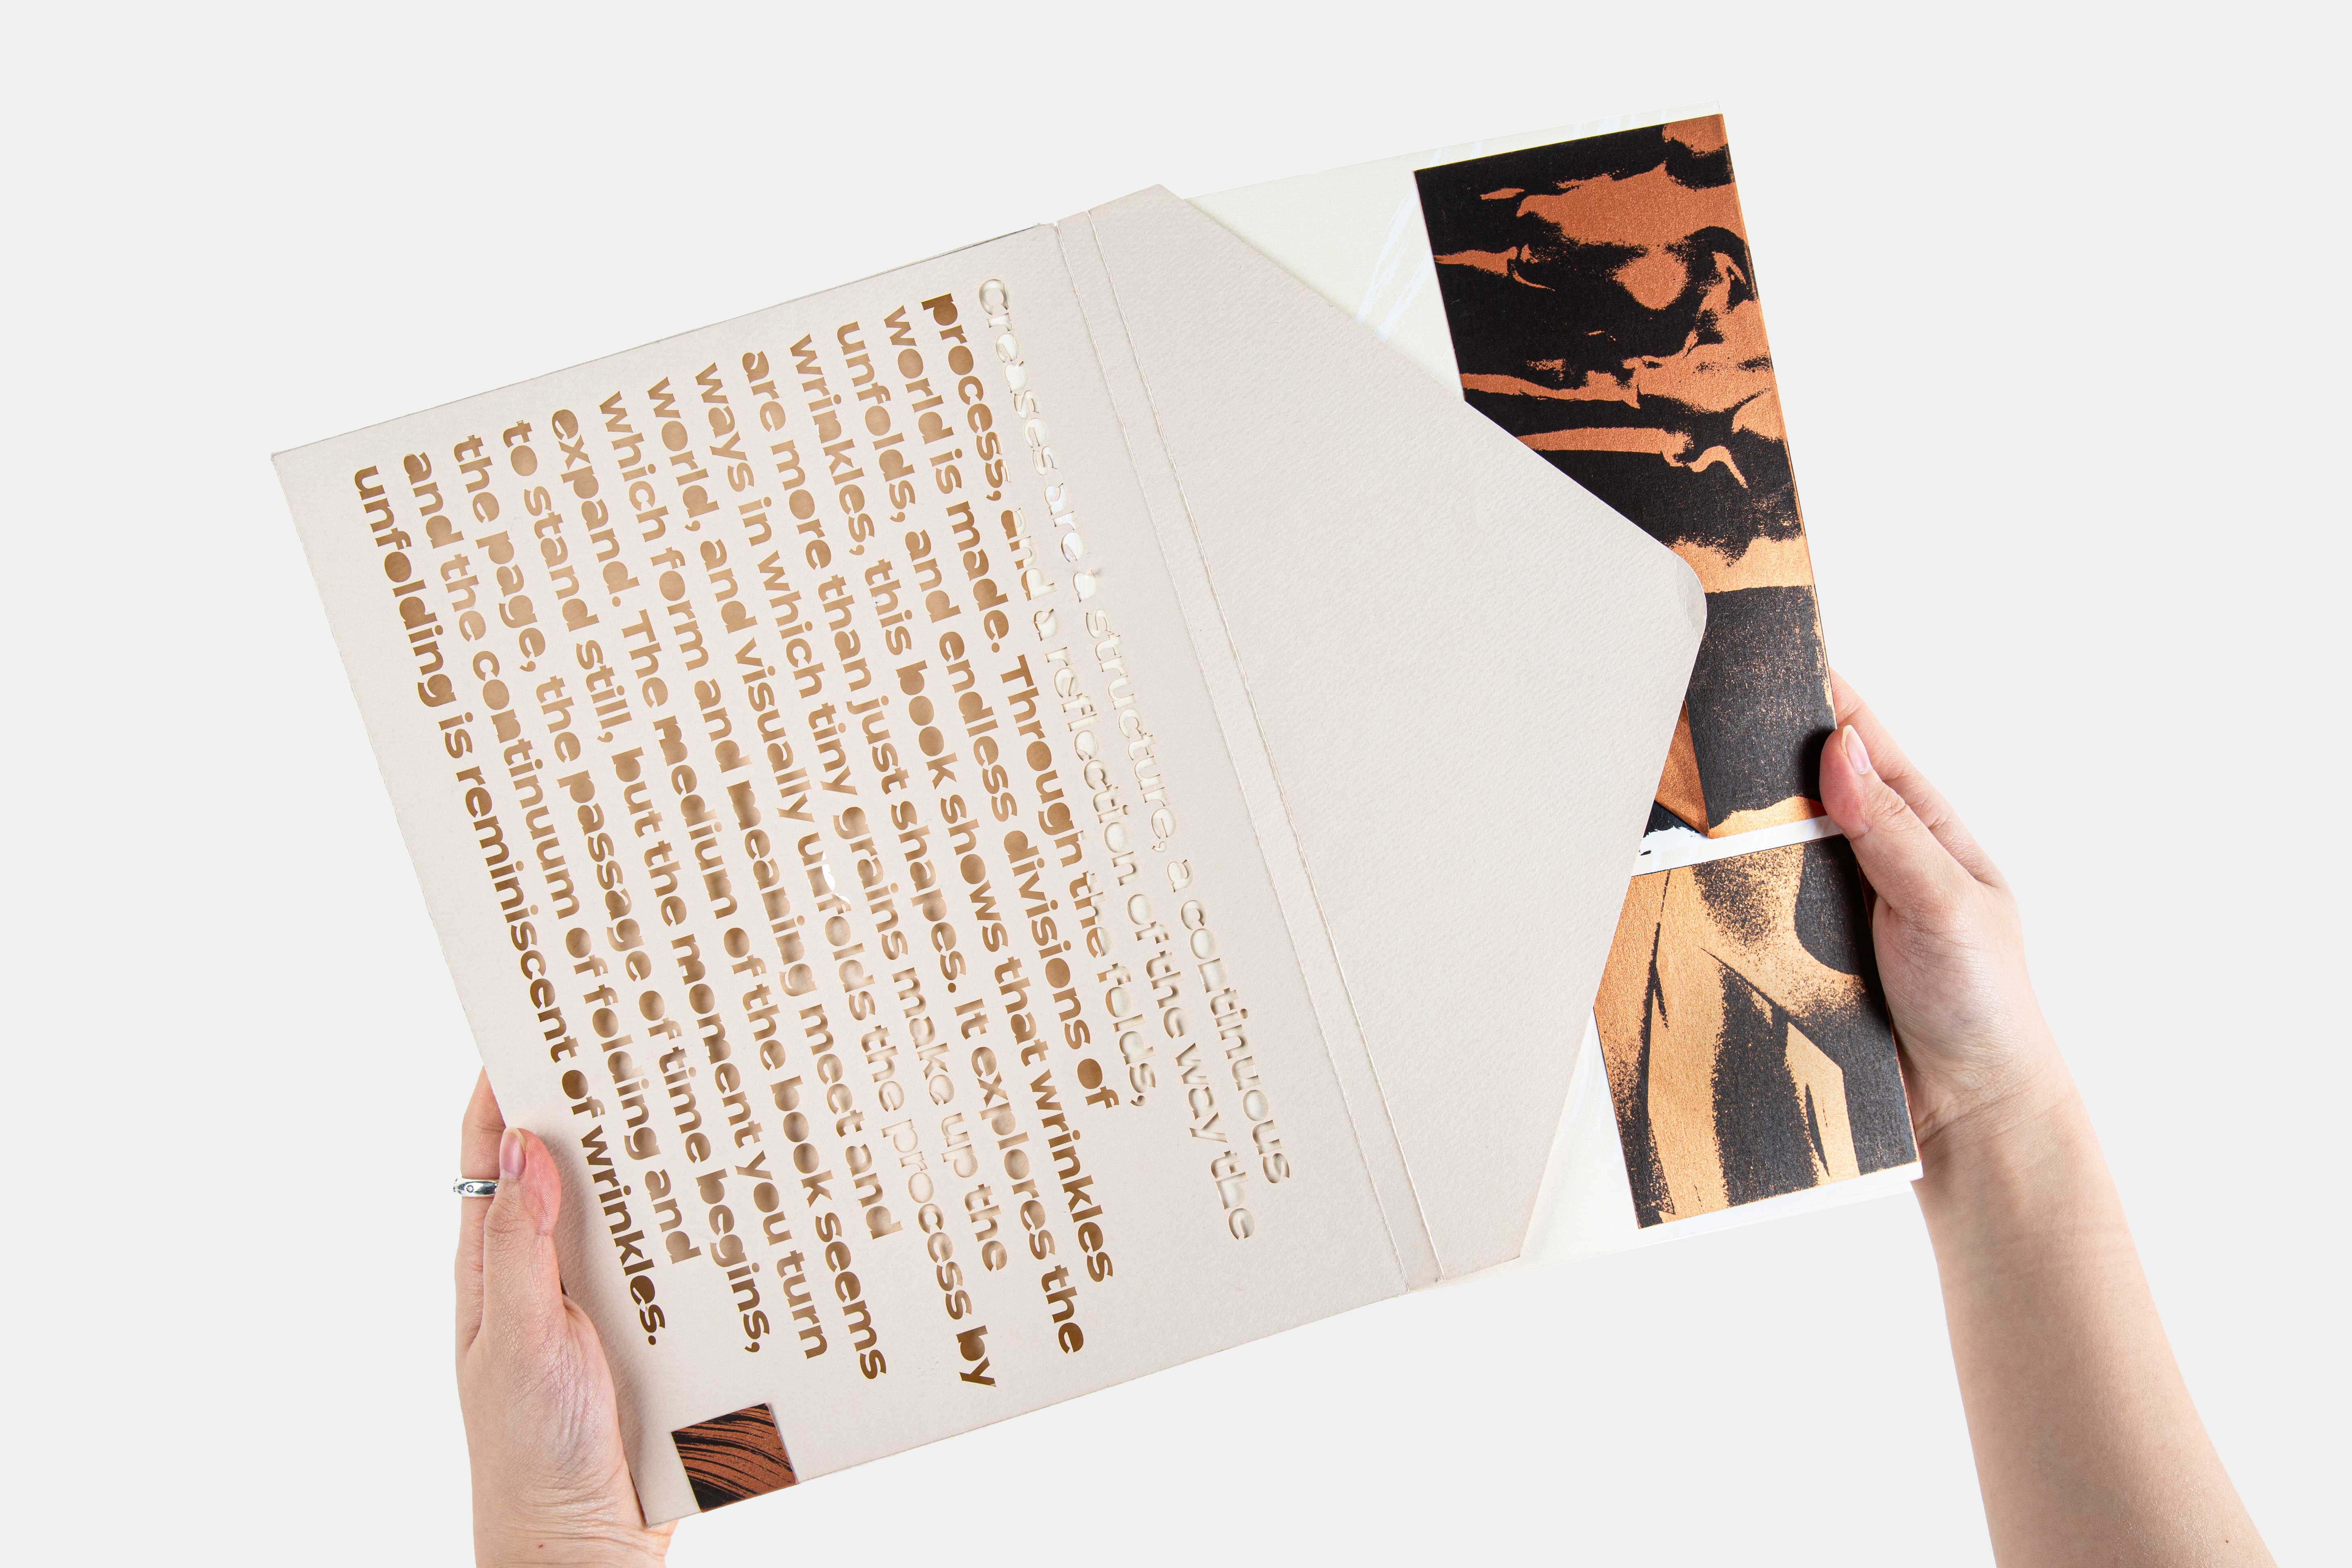 Creases are a structure, a continuous
process, and a reflection of the way the
world is made. Through the folds,
unfolds, and endless divisions of
wrinkles, this book shows that wrinkles
are more than just shapes. It explores the
ways in which tiny grains make up the
world, and visually unfolds the process by
which form and meaning meet and
expand. The medium of the book seems
to stand still, but the moment you turn
the page, the passage of time begins,
and the continuum of folding and
unfolding is reminiscent of wrinkles.